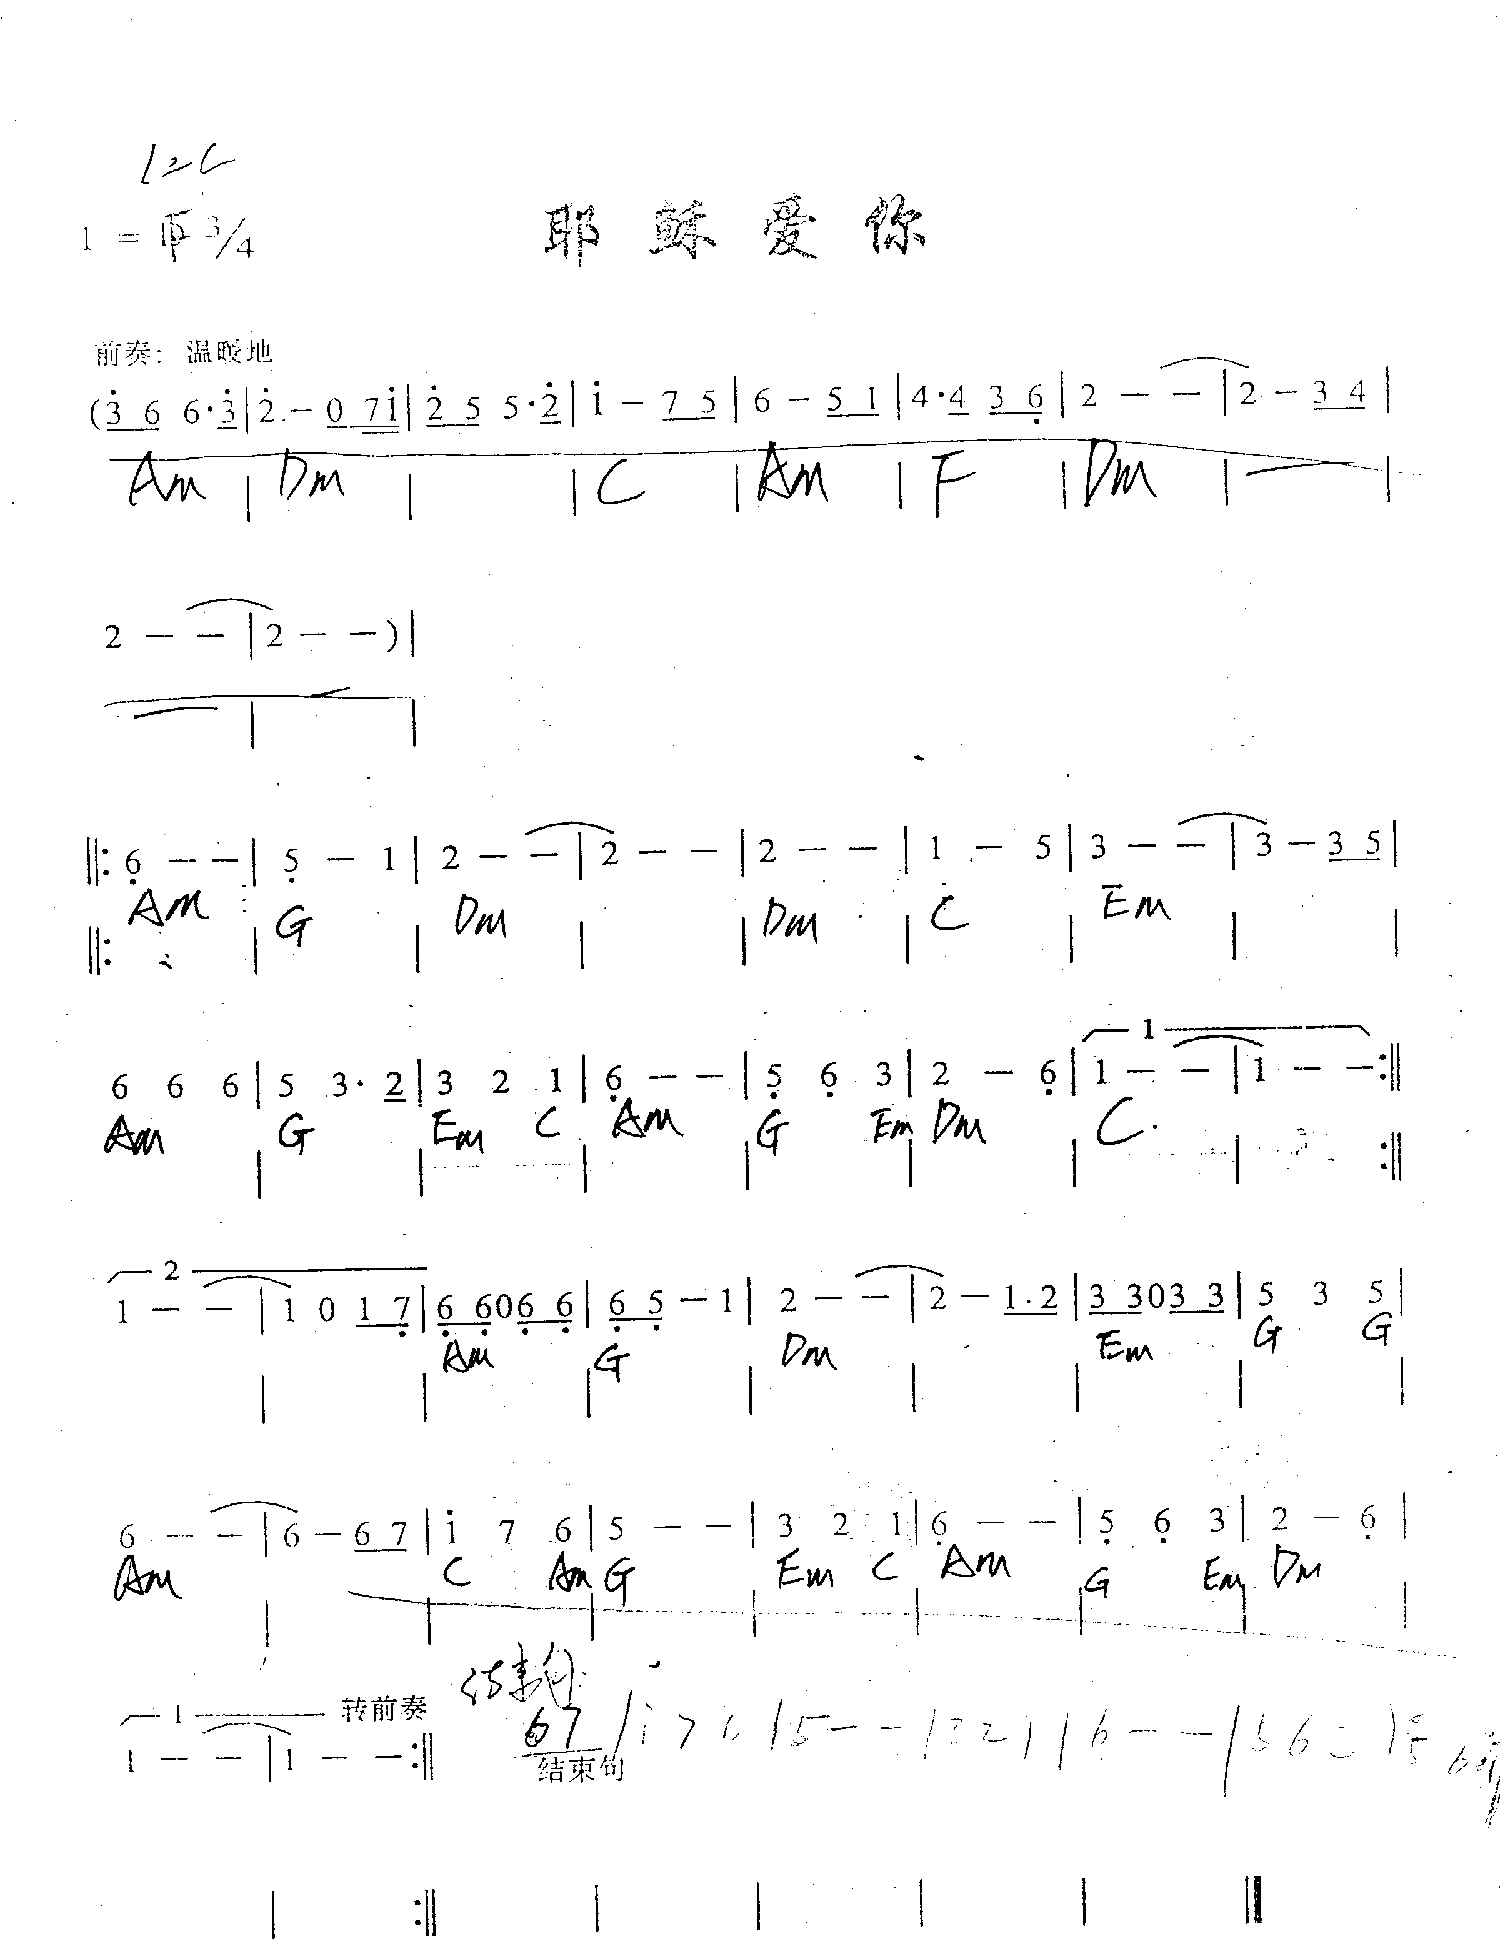 1=C
1 = F 3/4
耶稣爱你
前奏: 温暖地
(3̇ 6 6·3̇|2̇ - 0 7i̇|2̇ 5 5·2̇|i̇ - 7 5|6 - 5 1|4·4 3 6̣|2 - -|2 - 3 4|
Am | Dm | | C | Am | F | Dm | — |
2 - -|2 - -)|
‖: 6̣ - -|5̣ - 1|2 - -|2 - -|2 - -|1 - 5|3 - -|3 - 3 5|
Am G Dm Dm C Em
6 6 6|5 3·2|3 2 1|6̣ - -|5̣ 6̣ 3|2 - 6̣|1 - -|1 - -:‖
1
Am G Em C Am G Em Dm C
2
1 - -|1 0 1 7̣|6̣ 6̣0 6̣ 6̣|6̣ 5̣ - 1|2 - -|2 - 1.2|3 3 0 3 3|5 3 5|
Am G Dm Em G G
6 - -|6 - 6 7|i̇ 7 6|5 - -|3 2 1|6̣ - -|5̣ 6̣ 3|2 - 6̣|
Am C Am G Em C Am G Em Dm
1 转前奏
结束句:
1 - -|1 - -:‖ 6 7 | i̇ 7 6 | 5 - - | 3 2 1 | 6 - - | 5 6
结束句